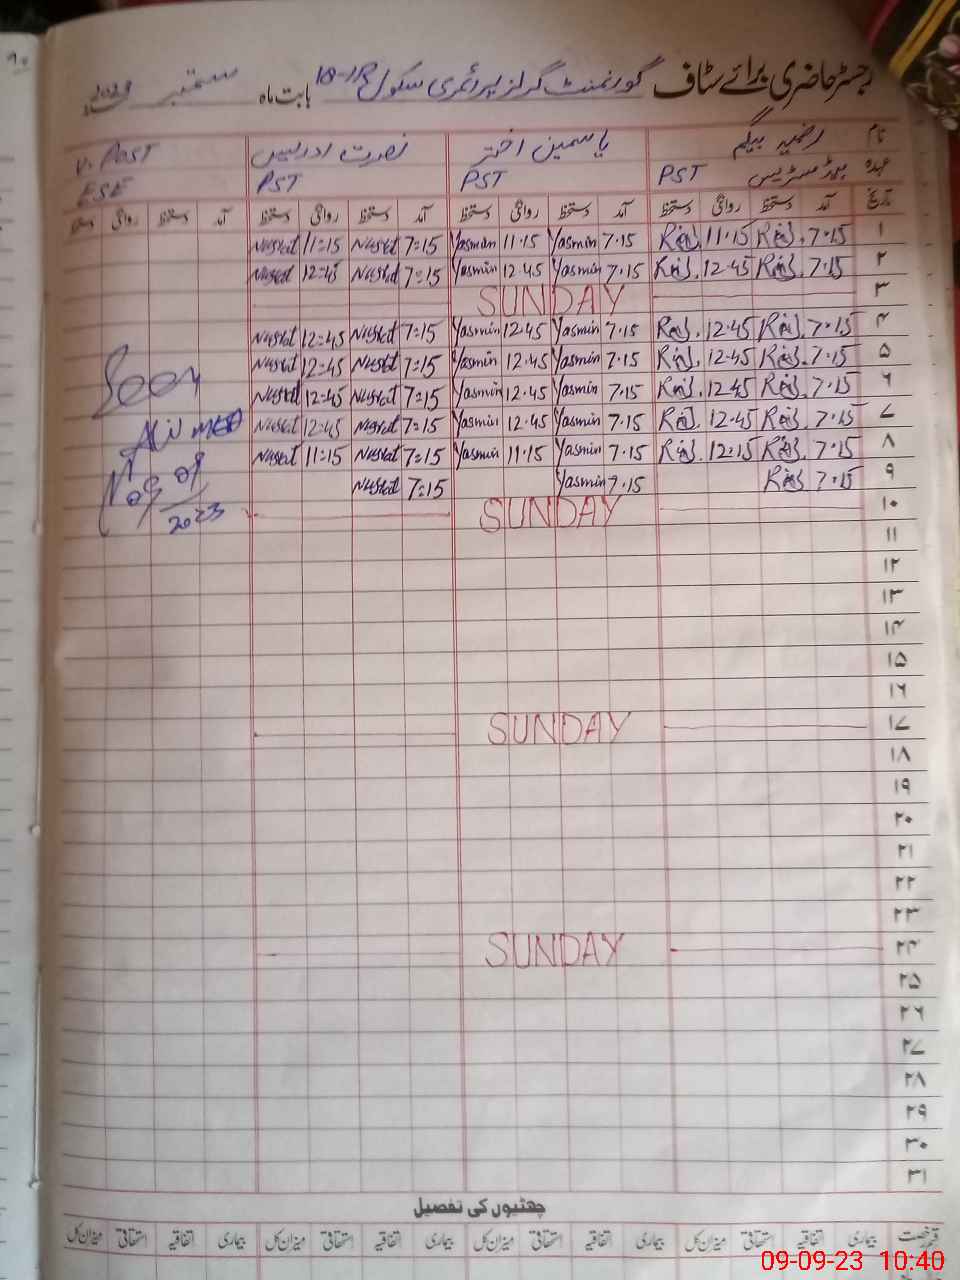 رجسٹر حاضری برائے سٹاف گورنمنٹ گرلز پرائمری سکول 18-1R بابت ماہ ستمبر 2023
نام رضیہ بیگم یاسمین اختر نصرت ادریس V. Post
عہدہ ہیڈ مسٹریس PST PST PST ESE
تاریخ آمد دستخط روانگی دستخط آمد دستخط روانگی دستخط آمد دستخط روانگی دستخط آمد دستخط روانگی دستخط
۱ 7.15 11.15 7.15 Yasmin 11.15 Yasmin 7=15 Nusrat 11=15 Nusrat
۲ 7.15 12.45 7.15 Yasmin 12.45 Yasmin 7=15 Nusrat 12=45 Nusrat
۳ SUNDAY
۴ 7.15 12.45 7.15 Yasmin 12.45 Yasmin 7=15 Nusrat 12=45 Nusrat
۵ 7.15 12.45 7.15 Yasmin 12.45 Yasmin 7=15 Nusrat 12=45 Nusrat
۶ 7.15 12.45 7.15 Yasmin 12.45 Yasmin 7=15 Nusrat 12=45 Nusrat
۷ 7.15 12.45 7.15 Yasmin 12.45 Yasmin 7=15 Nusrat 12=45 Nusrat
۸ 7.15 12.15 7.15 Yasmin 11.15 Yasmin 7=15 Nusrat 11=15 Nusrat
۹ 7.15 7.15 Yasmin 7=15 Nusrat
۱۰ SUNDAY
Seen
2023
۱۱
۱۲
۱۳
۱۴
۱۵
۱۶
۱۷ SUNDAY
۱۸
۱۹
۲۰
۲۱
۲۲
۲۳
۲۴ SUNDAY
۲۵
۲۶
۲۷
۲۸
۲۹
۳۰
۳۱
چھٹیوں کی تفصیل
قسم رخصت بیماری اتفاقیہ استحقاقی میزان کل بیماری اتفاقیہ استحقاقی میزان کل بیماری اتفاقیہ استحقاقی میزان کل بیماری اتفاقیہ استحقاقی میزان کل
09-09-23 10:40